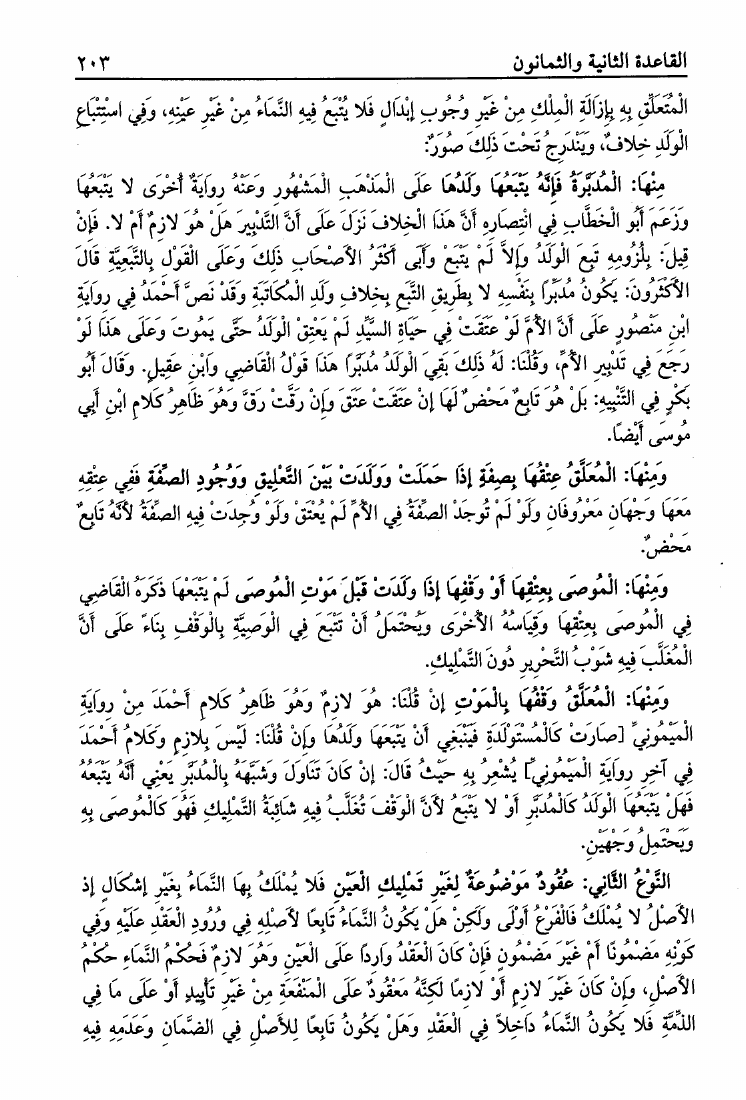 القاعدة الثانية والثمانون ٢٠٣
الْمُتَعَلِّقِ بِهِ بِإِزَالَةِ الْمِلْكِ مِنْ غَيْرِ وُجُوبِ إبْدَالٍ فَلَا يُتْبَعُ فِيهِ النَّمَاءُ مِنْ غَيْرِ عَيْنِهِ، وَفِي اسْتِتْبَاعِ
الْوَلَدِ خِلَافٌ، وَيَنْدَرِجُ تَحْتَ ذَلِكَ صُوَرٌ:
مِنْهَا: الْمُدَبَّرَةُ فَإِنَّهُ يَتْبَعُهَا وَلَدُهَا عَلَى الْمَذْهَبِ الْمَشْهُورِ وَعَنْهُ رِوَايَةٌ أُخْرَى لَا يَتْبَعُهَا
وَزَعَمَ أَبُو الْخَطَّابِ فِي انْتِصَارِهِ أَنَّ هَذَا الْخِلَافَ نَزَلَ عَلَى أَنَّ التَّدْبِيرَ هَلْ هُوَ لَازِمٌ أَمْ لَا. فَإِنْ
قِيلَ: بِلُزُومِهِ تَبِعَ الْوَلَدُ وَإِلَّا لَمْ يَتْبَعْ وَأَبَى أَكْثَرُ الْأَصْحَابِ ذَلِكَ وَعَلَى الْقَوْلِ بِالتَّبَعِيَّةِ قَالَ
الْأَكْثَرُونَ: يَكُونُ مُدَبَّرًا بِنَفْسِهِ لَا بِطَرِيقِ التَّبَعِ بِخِلَافِ وَلَدِ الْمُكَاتَبَةِ وَقَدْ نَصَّ أَحْمَدُ فِي رِوَايَةِ
ابْنِ مَنْصُورٍ عَلَى أَنَّ الْأُمَّ لَوْ عَتَقَتْ فِي حَيَاةِ السَّيِّدِ لَمْ يَعْتِقْ الْوَلَدُ حَتَّى يَمُوتَ وَعَلَى هَذَا لَوْ
رَجَعَ فِي تَدْبِيرِ الْأُمِّ، وَقُلْنَا: لَهُ ذَلِكَ بَقِيَ الْوَلَدُ مُدَبَّرًا هَذَا قَوْلُ الْقَاضِي وَابْنِ عَقِيلٍ. وَقَالَ أَبُو
بَكْرٍ فِي التَّنْبِيهِ: بَلْ هُوَ تَابِعٌ مَحْضٌ لَهَا إنْ عَتَقَتْ عَتَقَ وَإِنْ رَقَّتْ رَقَّ وَهُوَ ظَاهِرُ كَلَامِ ابْنِ أَبِي
مُوسَى أَيْضًا.
وَمِنْهَا: الْمُعَلَّقُ عِتْقُهَا بِصِفَةٍ إذَا حَمَلَتْ وَوَلَدَتْ بَيْنَ التَّعْلِيقِ وَوُجُودِ الصِّفَةِ فَفِي عِتْقِهِ
مَعَهَا وَجْهَانِ مَعْرُوفَانِ وَلَوْ لَمْ تُوجَدْ الصِّفَةُ فِي الْأُمِّ لَمْ يُعْتَقْ وَلَوْ وُجِدَتْ فِيهِ الصِّفَةُ لِأَنَّهُ تَابِعٌ
مَحْضٌ.
وَمِنْهَا: الْمُوصَى بِعِتْقِهَا أَوْ وَقْفِهَا إذَا وَلَدَتْ قَبْلَ مَوْتِ الْمُوصَى لَمْ يَتْبَعْهَا ذَكَرَهُ الْقَاضِي
فِي الْمُوصَى بِعِتْقِهَا وَقِيَاسُهُ الْأُخْرَى وَيُحْتَمَلُ أَنْ تَتْبَعَ فِي الْوَصِيَّةِ بِالْوَقْفِ بِنَاءً عَلَى أَنَّ
الْمُغَلَّبَ فِيهِ شَوْبُ التَّحْرِيرِ دُونَ التَّمْلِيكِ.
وَمِنْهَا: الْمُعَلَّقُ وَقْفُهَا بِالْمَوْتِ إنْ قُلْنَا: هُوَ لَازِمٌ وَهُوَ ظَاهِرُ كَلَامِ أَحْمَدَ مِنْ رِوَايَةِ
الْمَيْمُونِيِّ [صَارَتْ كَالْمُسْتَوْلَدَةِ فَيَنْبَغِي أَنْ يَتْبَعَهَا وَلَدُهَا وَإِنْ قُلْنَا: لَيْسَ بِلَازِمٍ وَكَلَامُ أَحْمَدَ
فِي آخِرِ رِوَايَةِ الْمَيْمُونِيِّ] يُشْعِرُ بِهِ حَيْثُ قَالَ: إنْ كَانَ تَنَاوَلَ وَشَبَّهَهُ بِالْمُدَبَّرِ يَعْنِي أَنَّهُ يَتْبَعُهُ
فَهَلْ يَتْبَعُهَا الْوَلَدُ كَالْمُدَبَّرِ أَوْ لَا يَتْبَعُ لِأَنَّ الْوَقْفَ تَغَلَّبَ فِيهِ شَائِبَةُ التَّمْلِيكِ فَهُوَ كَالْمُوصَى بِهِ
وَيَحْتَمِلُ وَجْهَيْنِ.
النَّوْعُ الثَّانِي: عُقُودٌ مَوْضُوعَةٌ لِغَيْرِ تَمْلِيكِ الْعَيْنِ فَلَا يُمْلَكُ بِهَا النَّمَاءُ بِغَيْرِ إشْكَالٍ إذِ
الْأَصْلُ لَا يُمْلَكُ فَالْفَرْعُ أَوْلَى وَلَكِنْ هَلْ يَكُونُ النَّمَاءُ تَابِعًا لِأَصْلِهِ فِي وُرُودِ الْعَقْدِ عَلَيْهِ وَفِي
كَوْنِهِ مَضْمُونًا أَمْ غَيْرَ مَضْمُونٍ فَإِنْ كَانَ الْعَقْدُ وَارِدًا عَلَى الْعَيْنِ وَهُوَ لَازِمٌ فَحُكْمُ النَّمَاءِ حُكْمُ
الْأَصْلِ، وَإِنْ كَانَ غَيْرَ لَازِمٍ أَوْ لَازِمًا لَكِنَّهُ مَعْقُودٌ عَلَى الْمَنْفَعَةِ مِنْ غَيْرِ تَأْبِيدٍ أَوْ عَلَى مَا فِي
الذِّمَّةِ فَلَا يَكُونُ النَّمَاءُ دَاخِلًا فِي الْعَقْدِ وَهَلْ يَكُونُ تَابِعًا لِلْأَصْلِ فِي الضَّمَانِ وَعَدَمِهِ فِيهِ